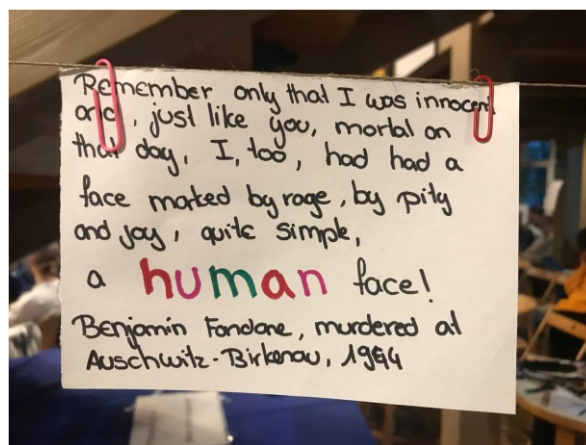 Remember only that I was innocent
and, just like you, mortal on
that day, I, too, had had a
face marked by rage, by pity
and joy, quite simple,
a human face!
Benjamin Fondane, murdered at
Auschwitz-Birkenau, 1944